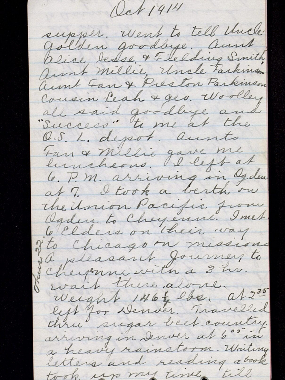 Oct 1914
supper. Went to tell Uncle
Golden goodbye. Aunt
Alice, Jesse, & Fielding Smith,
Aunt Millie, Uncle Parkinson
Aunt Fan & Preston Parkinson
Cousin Leah & Geo. Woolley
all said goodbye and
"Success" to me at the
O.S.L. depot. Aunts
Fan & Millie gave me
luncheons. I left at
6 P.M. arriving in Ogden
at 7. I took a berth on
the Union Pacific from
Ogden to Cheyenne. I met
6 Elders on their way
to Chicago on missions
A pleasant journey to
Cheyenne with a 3 hr.
wait there alone.
Weight 146½ lbs. at 2³⁵
left for Denver. Travelled
thru sugar beet country
arriving in Denver at 6³⁵ in
a heavy rainstorm. Writing
letters and reading a book
took up my time till